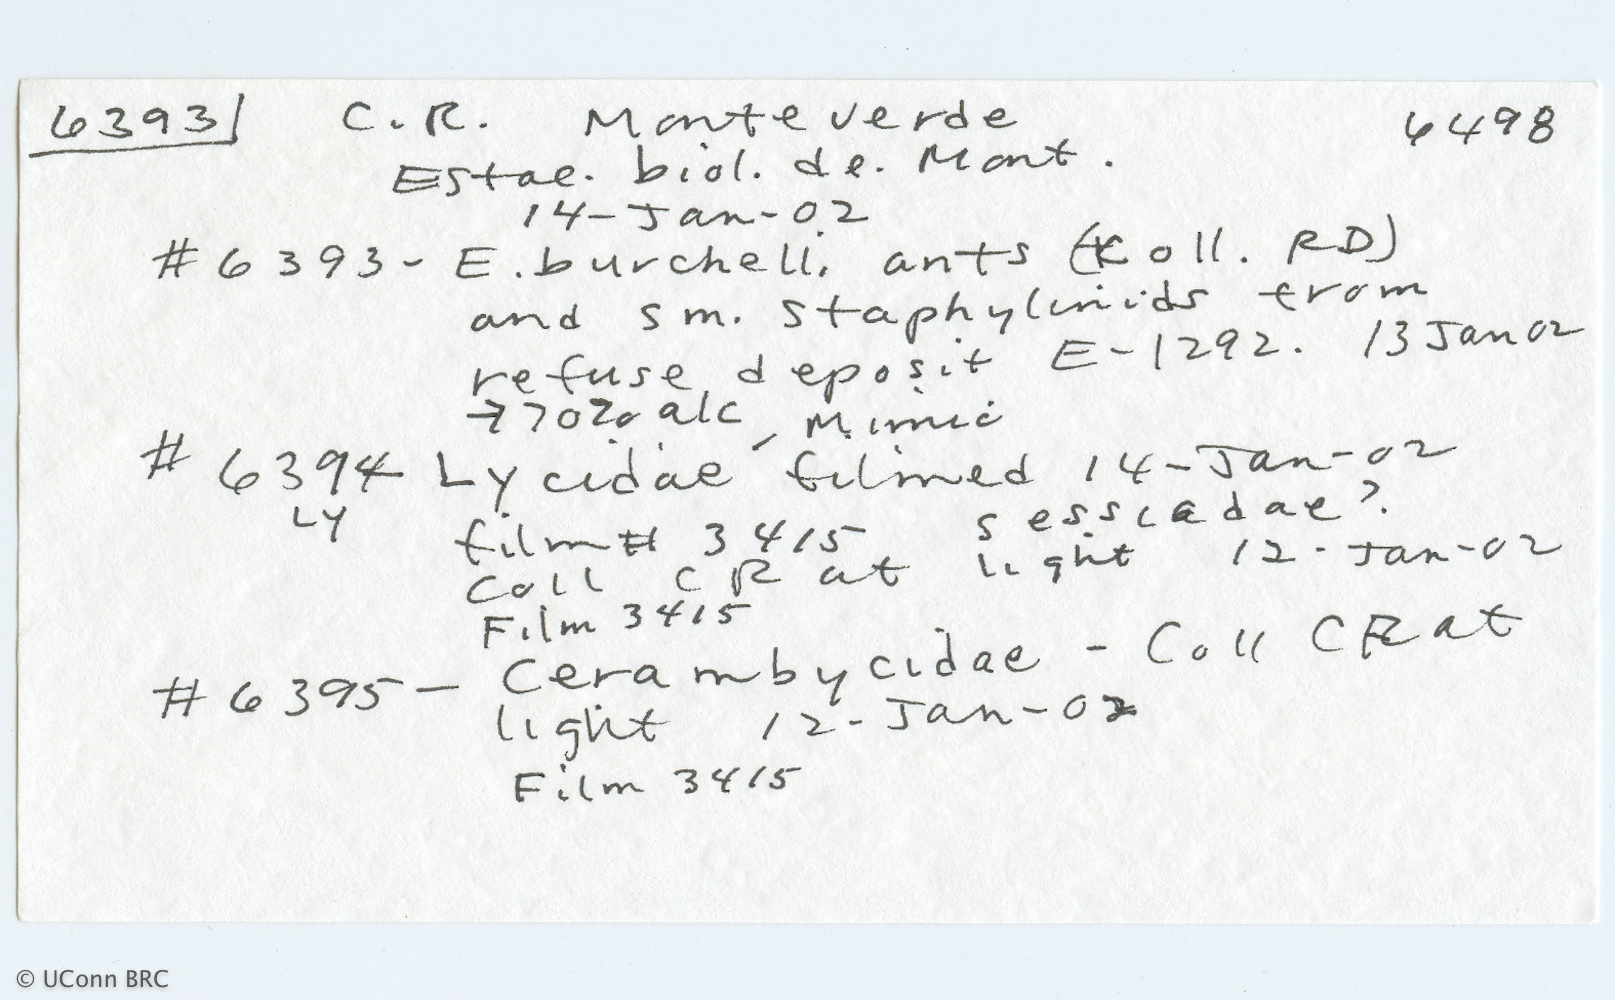 6393 C.R. Monteverde 6498
Estac. biol. de. Mont.
14-Jan-02
#6393- E. burchelli ants (Koll. RD)
and sm. Staphylinids from
refuse deposit E-1292. 13 Jan 02
→70% alc, Mimic
#6394 Lycidae filmed 14-Jan-02
LY film# 3415 sessiadae?
Coll CR at light 12-Jan-02
Film 3415
#6395- Cerambycidae - Coll CR at
light 12-Jan-02
Film 3415
© UConn BRC